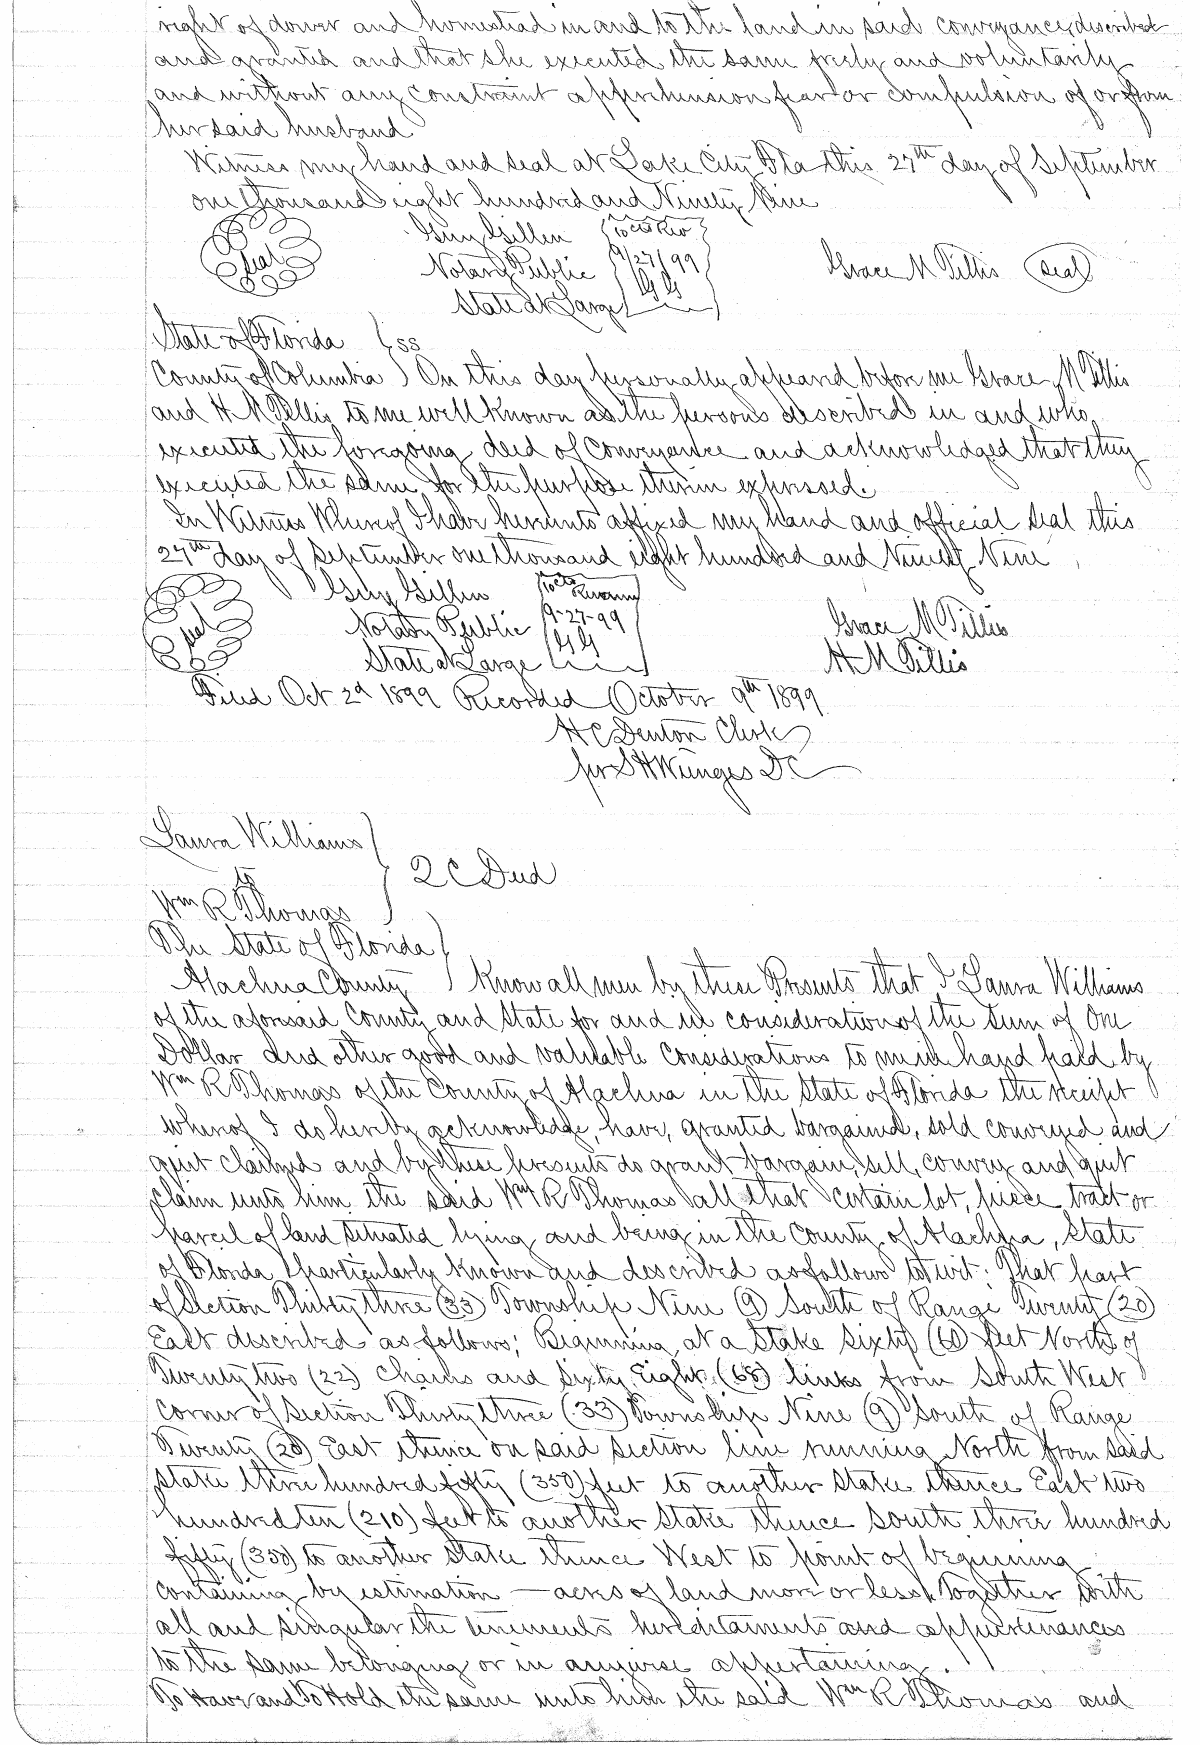 right of dower and homestead in and to the land in said conveyance described
and granted and that she executed the same freely and voluntarily
and without any constraint apprehension fear or compulsion of or from
her said husband
Witness my hand and seal at Lake City Fla this 27th day of September
one thousand eight hundred and Ninety Nine
Seal
Guy Gillen
Notary Public
State at Large
10 cts Rev
9/27/99
GG
Grace M Tillis seal
State of Florida } ss
County of Columbia } On this day personally appeared before me Grace M Tillis
and H M Tillis to me well known as the persons described in and who
executed the foregoing deed of conveyance and acknowledged that they
executed the same for the purpose therein expressed.
In Witness Whereof I have hereunto affixed my hand and official seal this
27th day of September one thousand eight hundred and Ninety Nine
Seal
Guy Gillen
Notary Public
State at Large
10 cts
Revenue
9-27-99
GG
Grace M Tillis
H M Tillis
Filed Oct 2d 1899 Recorded October 9th 1899
H C Denton Clerk
per S H Wienges D C
Laura Williams
to
Wm R Thomas
} 2 C Deed
The State of Florida }
Alachua County } Know all men by these Presents that I Laura Williams
of the aforesaid County and State for and in consideration of the sum of One
Dollar and other good and valuable considerations to me in hand paid by
Wm R Thomas of the County of Alachua in the State of Florida the receipt
whereof I do hereby acknowledge, have, granted bargained, sold conveyed and
quit claimed and by these presents do grant bargain, sell, convey and quit
claim unto him the said Wm R Thomas all that certain lot, piece tract or
parcel of land situated lying and being in the County of Alachua, State
of Florida particularly known and described as follows to wit: That part
of Section Thirty three (33) Township Nine (9) South of Range Twenty (20)
East described as follows; Beginning at a Stake Sixty (60) feet North of
Twenty two (22) chains and Sixty Eight (68) links from South West
corner of Section Thirty three (33) Township Nine (9) South of Range
Twenty (20) East thence on said section line running North from said
stake three hundred fifty (350) feet to another stake thence East two
hundred ten (210) feet to another stake thence South three hundred
fifty (350) to another stake thence West to point of beginning
containing by estimation — acres of land more or less, Together with
all and singular the tenements hereditaments and appurtenances
to the same belonging or in anywise appertaining.
To Have and To Hold the same unto him the said Wm R Thomas and